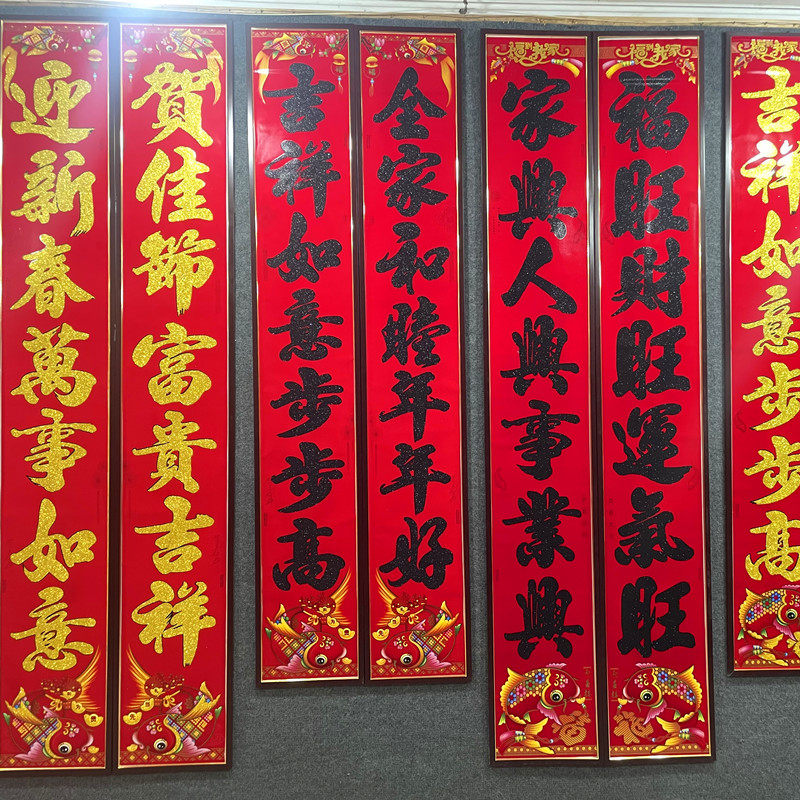 福到我家
吉祥如意步步高
福到我家
福旺財旺運氣旺
福到我家
家興人興事業興
全家和睦年年好
吉祥如意步步高
賀佳節富貴吉祥
迎新春萬事如意